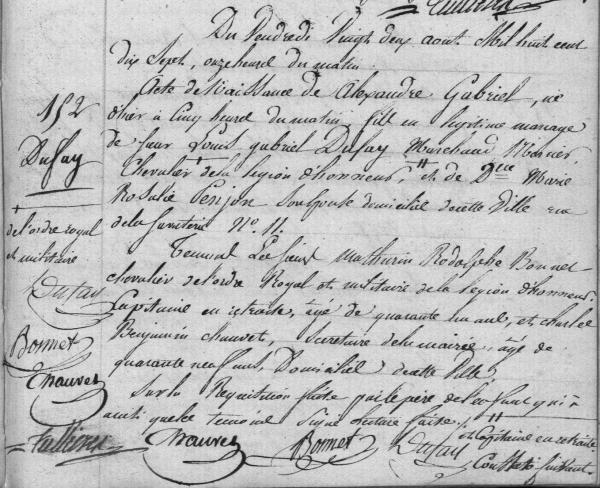 Du Vendredi Vingt deux aout Mil huit cent
dix Sept, onze heure du matin.
Acte de Naissance de Alexandre Gabriel, né
d'hier à Cinq heure du matin, fils en légitime mariage
de Sieur Louis gabriel Dufay Marchand Mercier,
Chevalier de la légion d'honneur, et de Delle Marie
Rosalie Penjon Son Epouse domicilié de cette Ville rue
de la N° 11.
Temoins Les Sieurs Mathurin Rodolphe Bonnet
chevalier de l'ordre Royal et militaire de la légion d'honneur
Capitaine en retraite, âgé de quarante un ans, et charles
Benjamin chauvet, Secretaire de la mairie, âgé de
quarante neuf ans, Domiciliés de cette Ville
Sur la Requisition faite par le père de l'enfant qui a
ainsi que les temoins Signé lecture faite.
152
Dufay
de l'ordre royal
et militaire
Dufay
Bonnet
Chauvet
Chauvet
Bonnet
Dufay
et Capitaine en retraite